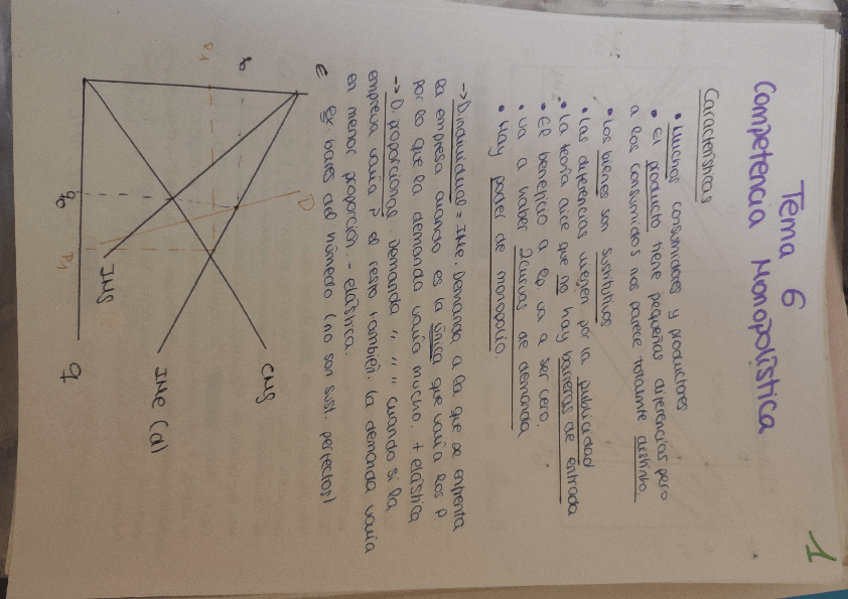 1
Tema 6
Competencia Monopolística
Características
• Muchos consumidores y productores
• El producto tiene pequeñas diferencias pero
a los consumidos nos parece totalmente distinto
• Los bienes son sustitutivos
• Las diferencias vienen por la publicidad
• La teoría dice que no hay barreras de entrada
• El beneficio a lp va a ser cero.
• Va a haber 2 curvas de demanda
• Hay poder de monopolio.
-> D. individual = INe. Demanda a la que se enfrenta
la empresa cuando es la única que varía los P.
por lo que la demanda varía mucho. + elástica
-> D. proporcional. Demanda " " " cuando si la
empresa varía P el resto también. La demanda varía
en menor proporción. - elástica.
Ex: bares del húmedo (no son sust. perfectos)
€
P1
D
CMg
INe (d)
IMg
q0
P1
q